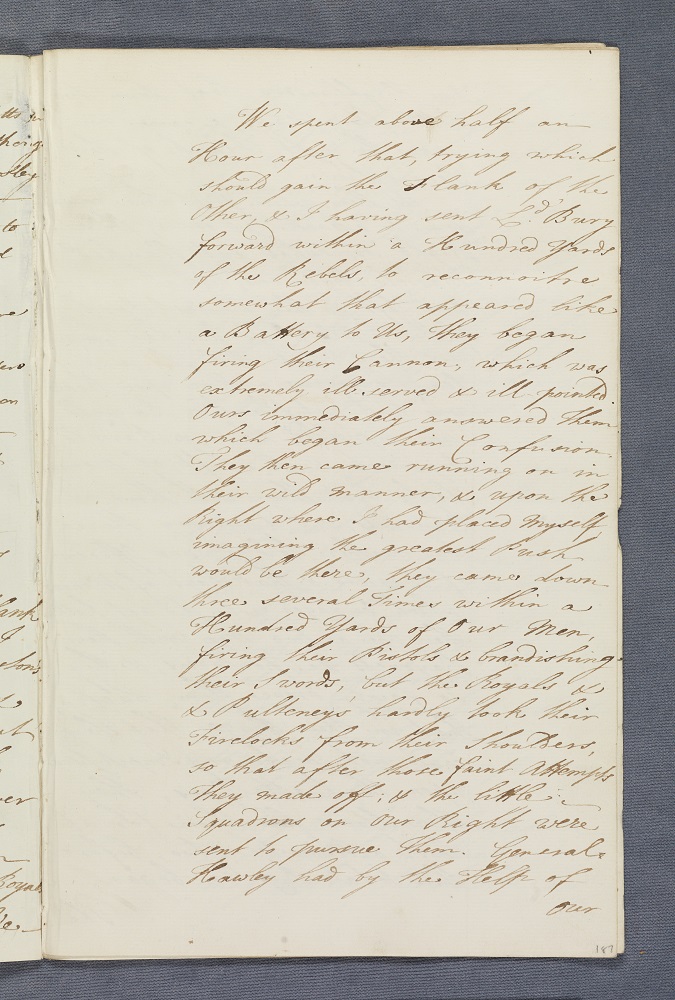 We spent above half an
Hour after that, trying which
should gain the Flank of the
Other, & I having sent Ld. Bury
forward within a Hundred Yards
of the Rebels, to reconnoitre
somewhat that appeared like
a Battery to Us, They began
firing their Cannon, which was
extremely ill served & ill pointed.
Ours immediately answered them
which began their Confusion.
They then came running on in
their wild manner, & upon the
Right where I had placed Myself
imagining the greatest Push
would be there, they came down
three several Times within a
Hundred Yards of Our Men,
firing their Pistols & brandishing
their Swords, but the Royals &
& Pulteney's hardly took their
Firelocks from their Shoulders,
so that after those faint Attempts
They made off; & the little
Squadrons on Our Right were
sent to pursue them. General
Hawley had by the Help of
Our
187